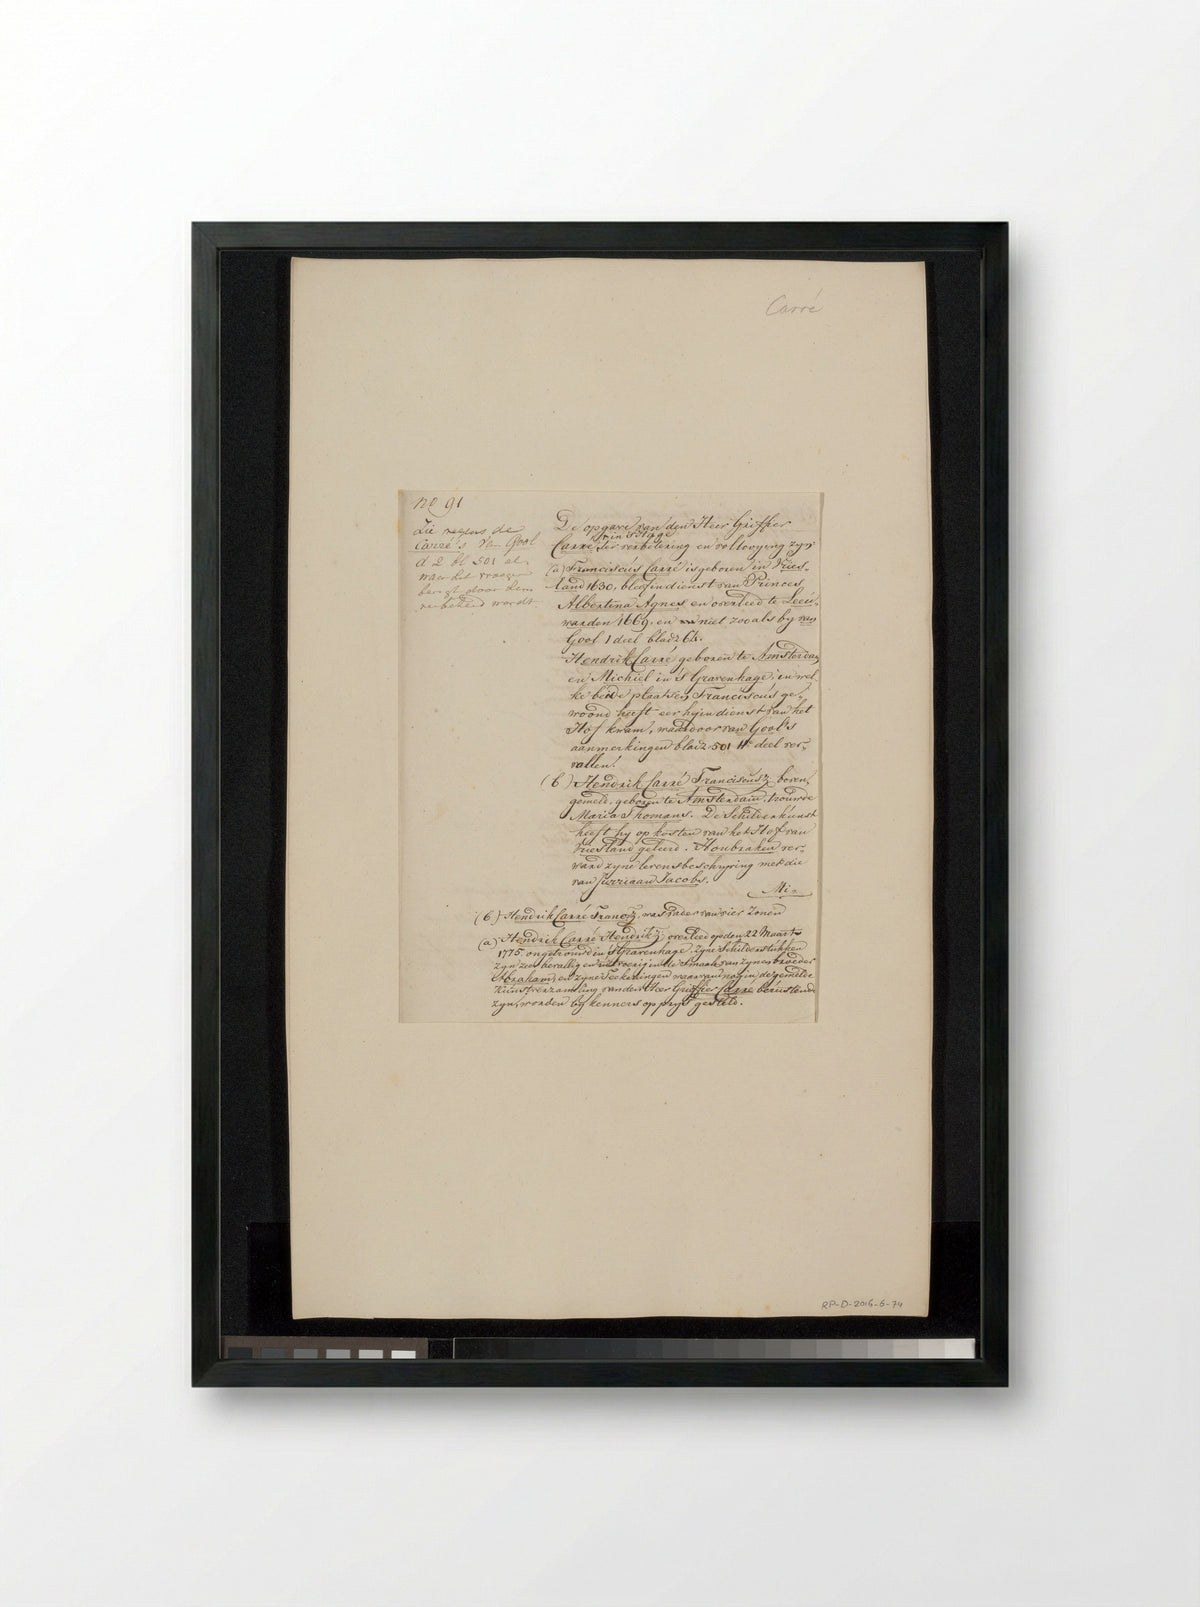 Carré
no 91
Zie wegens de
Carré's Van Gool
d 2 bl 501 al-
waar het vroeger
berigt door hem
verbeterd wordt
De opgave van den Heer Griffier
in 's Hage
Carré ter verbetering en voltooying zyn
(a) Franciscús Carré is geboren in Vries-
land 1630, bleef in dienst van Princes
Albertina Agnes en overleed te Leeú-
warden 1669, en niet zooals by van
Gool 1 deel bladz 64.
Hendrik Carré geboren te Amsterdam
en Michiel in 's Gravenhage, in wel-
ke beide plaatsen Franciscús ge-
woond heeft eer hy in dienst van het
Hof kwam, waardoor van Gool's
aanmerkingen bladz 501 IIe deel ver-
vallen.
(b) Hendrik Carré Franciscúsz boven-
gemeld, geboren te Amsterdam, trouwde
Maria Thomans. De Schilderkúnst
heeft hy op kosten van het Hof van
Vriesland geleerd. Houbraken ver-
ward zyne levensbeschryving met die
van Jurriaan Jacobs.
Mi-
(b) Hendrik Carré Francsz, was vader van vier Zonen
(a) Hendrik Carré Hendriksz overleed op den 22 Maart
1775 ongetrouwd in 's Gravenhage. Zyne Schilderstukken
zyn zeer bevallig en in de smaak van zynen broeder
Abraham, en zyne Teekeningen waarvan nog in de gemelde
Kúnstverzameling van den Heer Griffier Carré berústende
zyn, worden by kenners op prys gesteld.
RP-D-2016-6-74